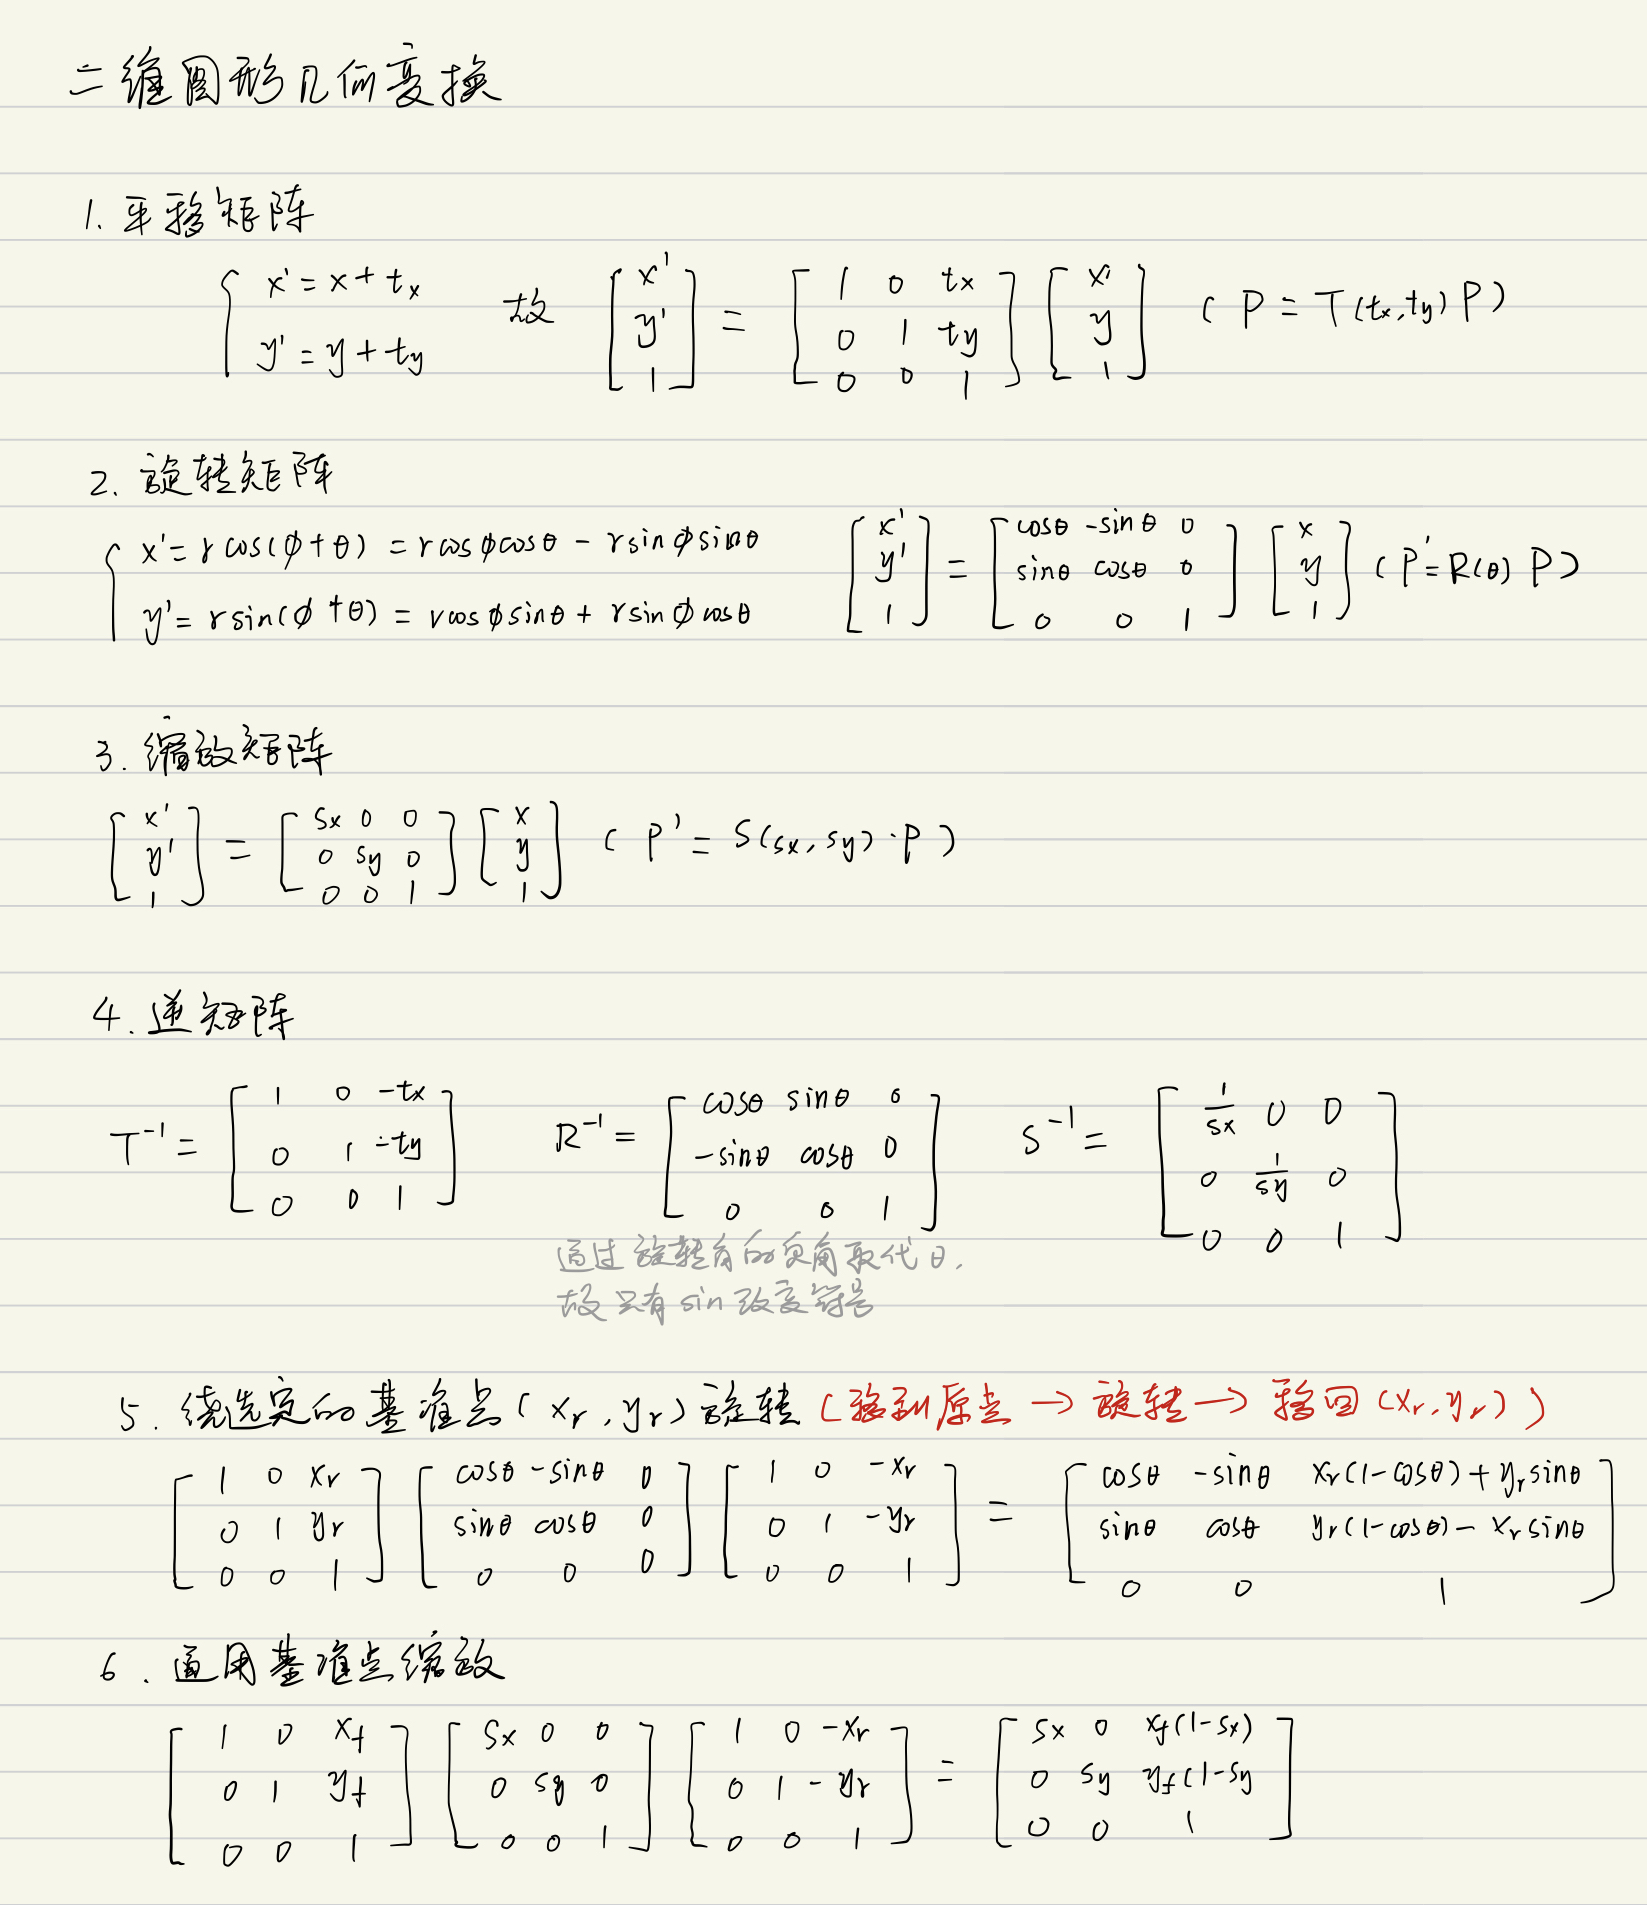 二维图形几何变换
1. 平移矩阵
{ x' = x + tx
y' = y + ty 故 [x' ; y' ; 1] = [1 0 tx ; 0 1 ty ; 0 0 1] [x ; y ; 1] ( P = T(tx,ty) P )
2. 旋转矩阵
{ x' = r cos(φ+θ) = r cosφ cosθ - r sinφ sinθ
y' = r sin(φ+θ) = r cosφ sinθ + r sinφ cosθ [x' ; y' ; 1] = [cosθ -sinθ 0 ; sinθ cosθ 0 ; 0 0 1] [x ; y ; 1] ( P' = R(θ) P )
3. 缩放矩阵
[x' ; y' ; 1] = [sx 0 0 ; 0 sy 0 ; 0 0 1] [x ; y ; 1] ( P' = S(sx, sy)·P )
4. 逆矩阵
T⁻¹ = [1 0 -tx ; 0 1 -ty ; 0 0 1] R⁻¹ = [cosθ sinθ 0 ; -sinθ cosθ 0 ; 0 0 1] S⁻¹ = [1/sx 0 0 ; 0 1/sy 0 ; 0 0 1]
通过旋转角的负角取代θ,
故只有sin改变符号
5. 绕选定的基准点(xr, yr)旋转 (移到原点 → 旋转 → 移回(xr, yr))
[1 0 xr ; 0 1 yr ; 0 0 1] [cosθ -sinθ 0 ; sinθ cosθ 0 ; 0 0 0] [1 0 -xr ; 0 1 -yr ; 0 0 1] = [cosθ -sinθ xr(1-cosθ)+yr sinθ ; sinθ cosθ yr(1-cosθ)-xr sinθ ; 0 0 1]
6. 通用基准点缩放
[1 0 xf ; 0 1 yf ; 0 0 1] [sx 0 0 ; 0 sy 0 ; 0 0 1] [1 0 -xr ; 0 1 -yr ; 0 0 1] = [sx 0 xf(1-sx) ; 0 sy yf(1-sy ; 0 0 1]